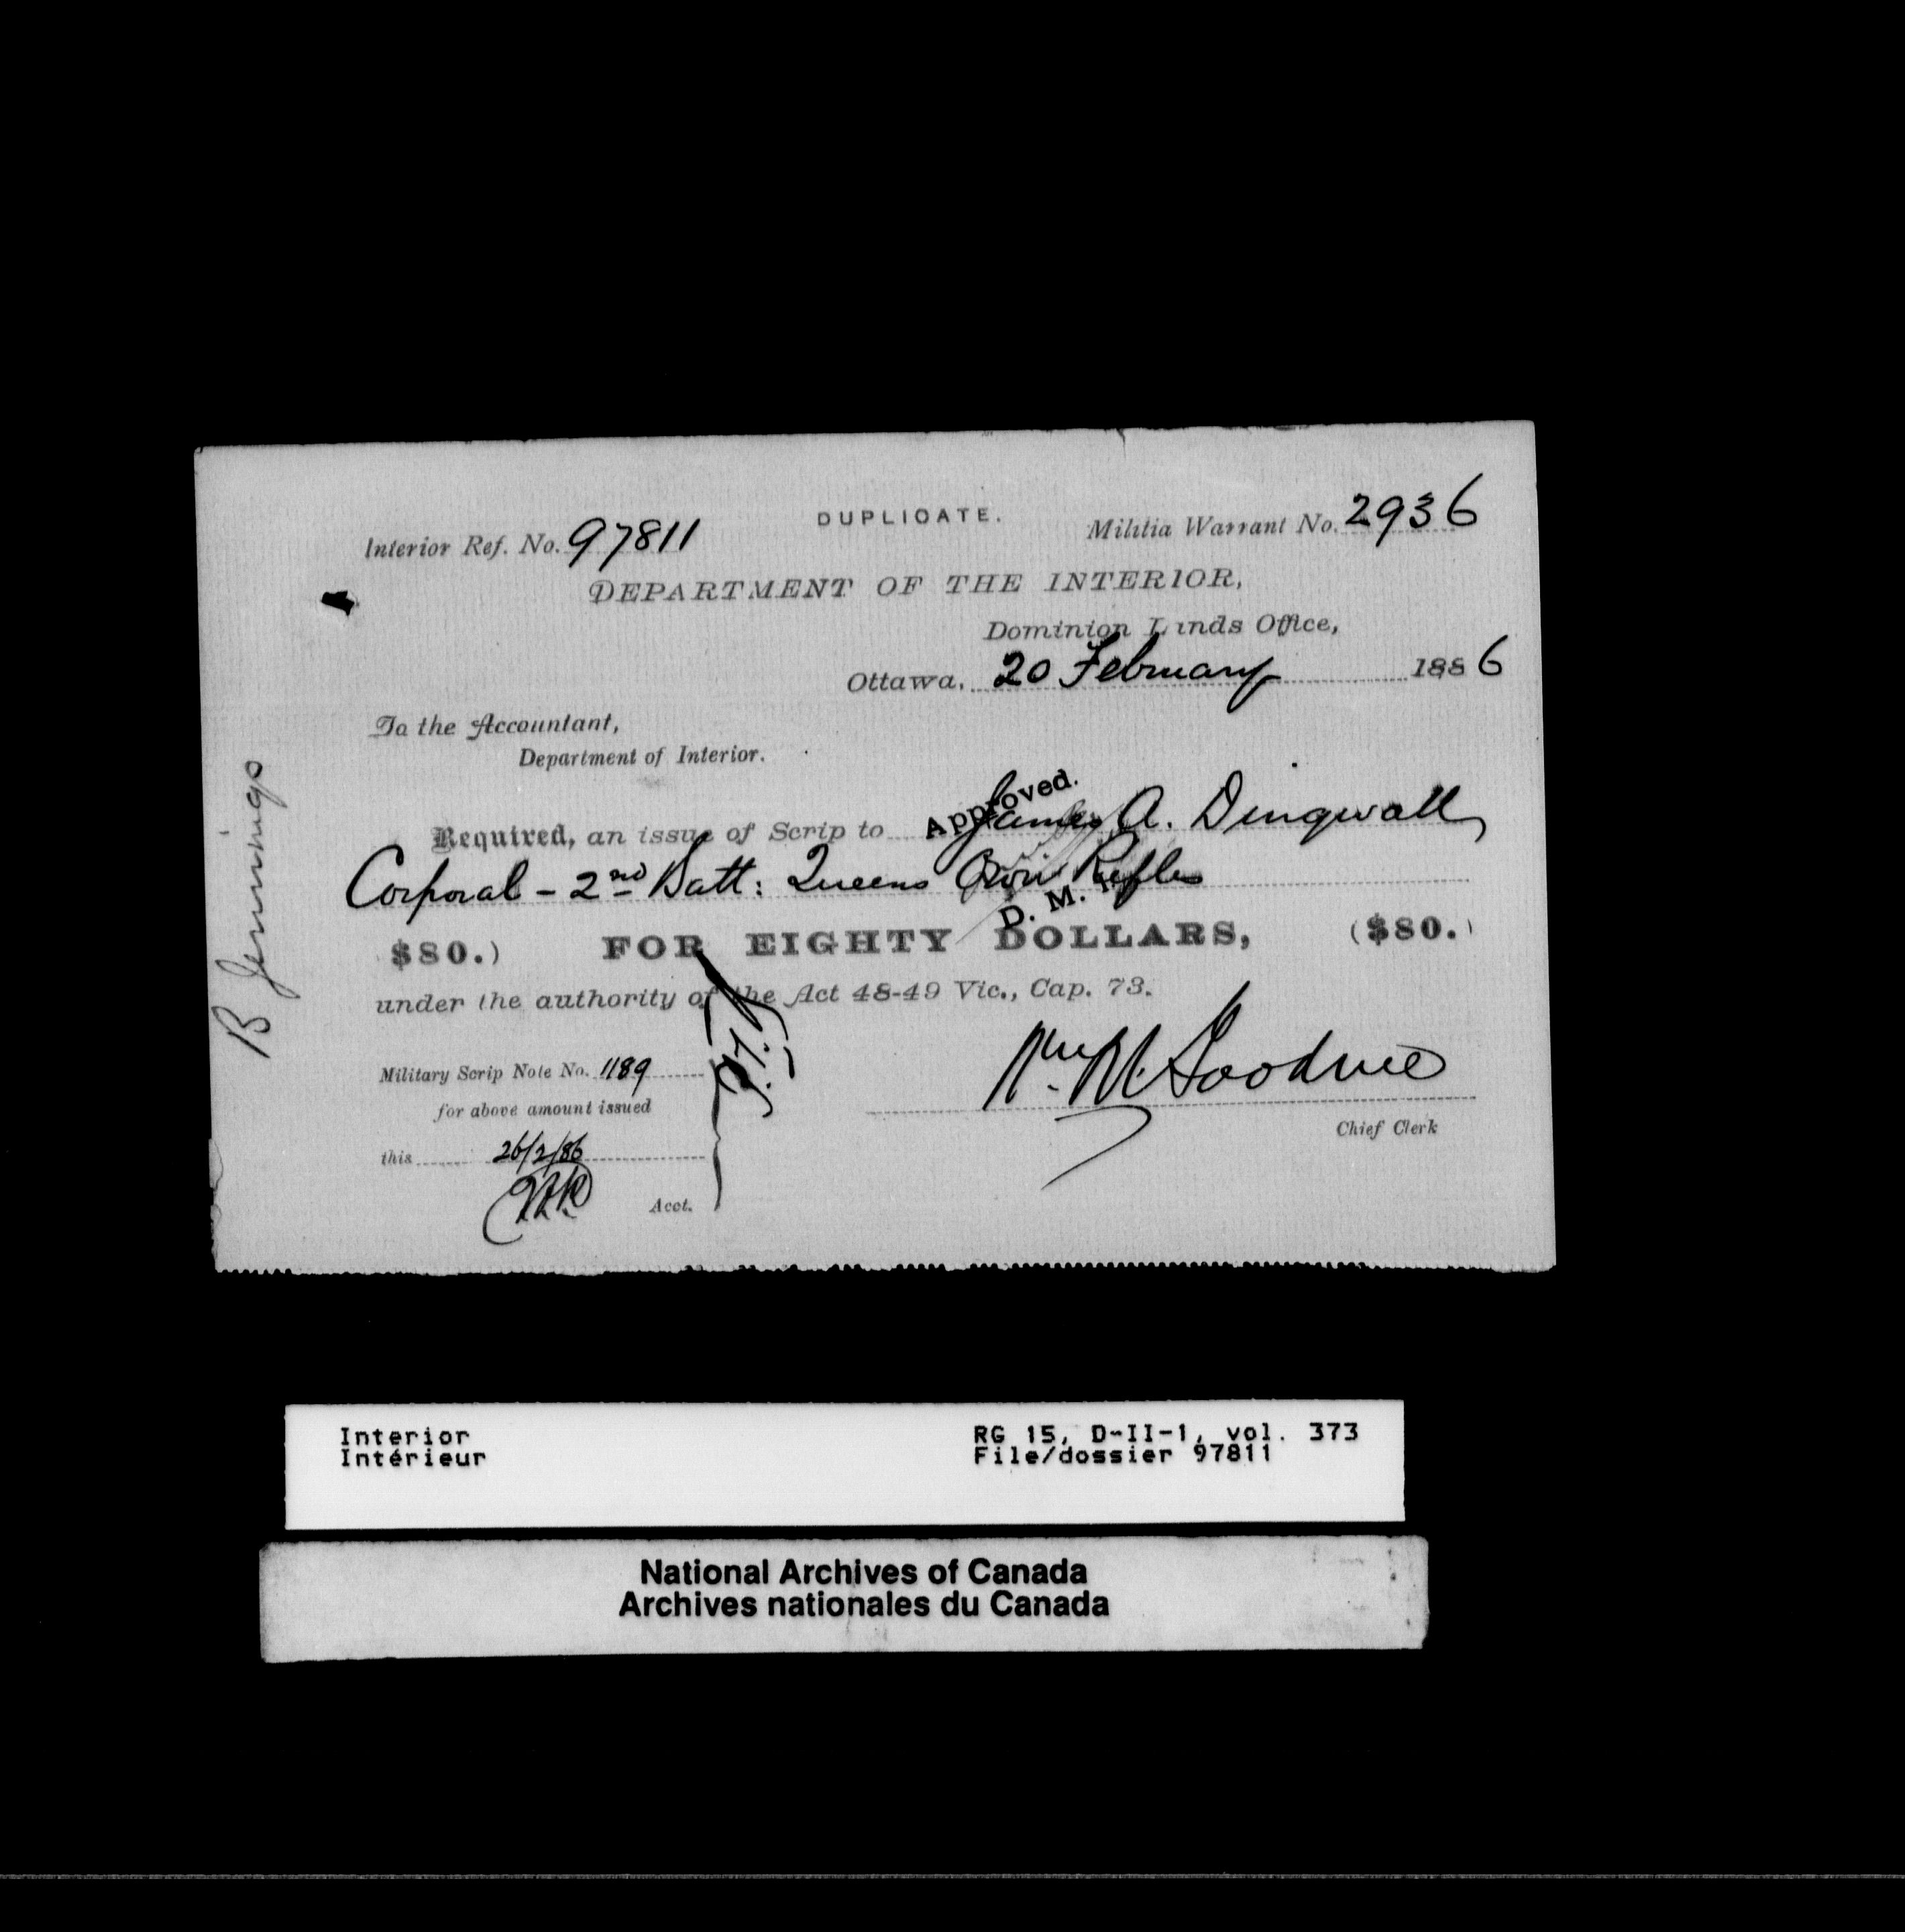 DUPLICATE.
Interior Ref. No. 97811
Militia Warrant No. 2936
DEPARTMENT OF THE INTERIOR,
Dominion Lands Office,
Ottawa, 20 February 1886
To the Accountant,
Department of Interior.
Approved.
Required, an issue of Scrip to James A. Dingwall
Corporal - 2nd Batt: Queens Own Rifles
D. M.
$80.) FOR EIGHTY DOLLARS, ($80.)
under the authority of the Act 48-49 Vic., Cap. 73.
B Jennings
Military Scrip Note No. 1189
for above amount issued
this 26/2/86
Acct.
Wm M. Goodwe
Chief Clerk
Interior
Intérieur
RG 15, D-II-1, vol. 373
File/dossier 97811
National Archives of Canada
Archives nationales du Canada